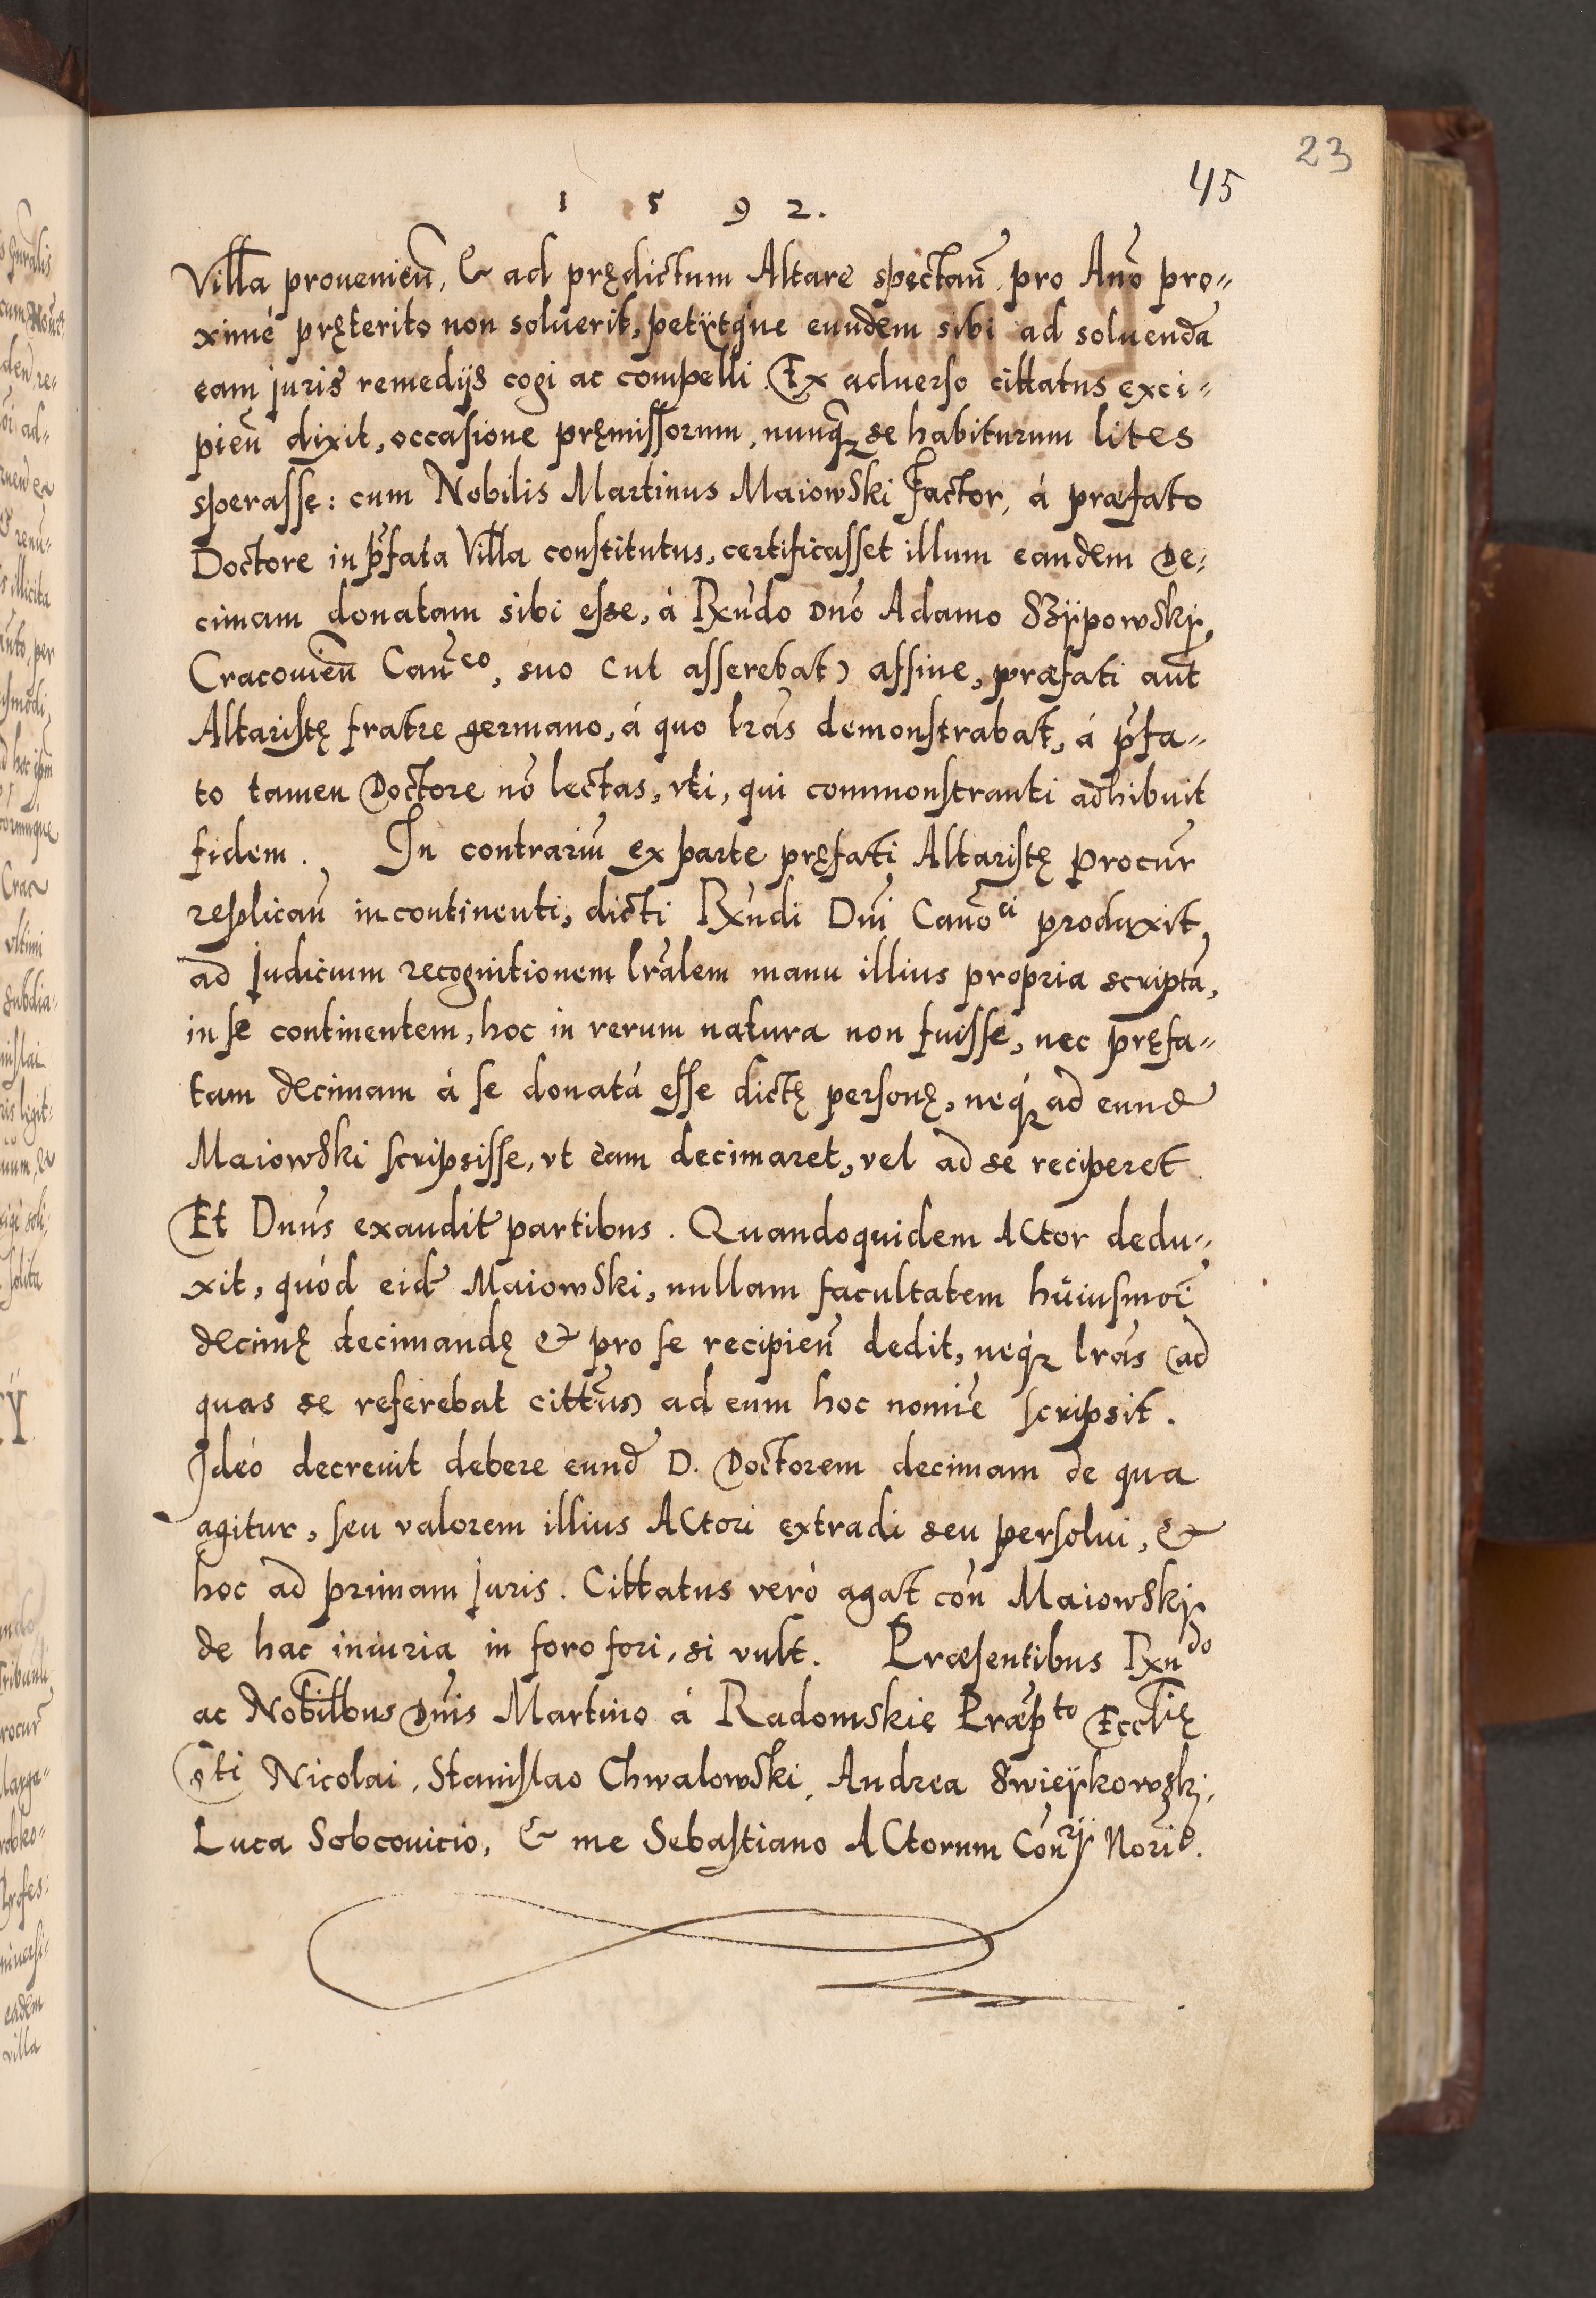 23
45
1 5 9 2.
Villa prouenień, & ad prędictum Altare spectań pro Anō pro„
ximè pręterito non soluerit, petÿtq́ue eundem sibi ad soluenda
eam juris remedijs cogi ac compelli. Ex aduerso cittatus exci„
pień dixit, occasione pręmissorum, nunq̃ se habiturum lites
sperasse: cum Nobilis Martinus Maiowski Factor, á præfato
Doctore in p̃fata Villa constitutus, certificasset illum eandem De„
cimam donatam sibi esse, á Rx̃ndo Dnō Adamo Szÿpowskÿ,
Cracouień Cañco, suo (ut asserebat) affine, præfati aut̃
Altaristę fratre germano, á quo lrãs demonstrabat, á p̃fa„
to tamen Doctore nō lectas, vti, qui commonstranti adhibuit
fidem. In contrariũ ex parte pręfati Altaristę Procur̃
replicań incontinenti, dicti Rx̃ndi Dñi Cañoci produxit,
ad Judicium recognitionem lrãlem manu illius propria scriptã,
in se continentem, hoc in rerum natura non fuisse, nec pręfa„
tam decimam á se donatá esse dictę personę, neq́ ad eund̃
Maiowski scripsisse, vt eam decimaret, vel ad se reciperet
Et Dnũs exaudit̃ partibus. Quandoquidem ACtor dedu„
xit, quód eid̃ Maiowski, nullam facultatem huiusmõi
decimę decimandę & pro se recipień dedit, neq́ lrãs (ad
quas se referebat citt̃us) ad eum hoc nomĩe scripsit.
Ideó decreuit debere eund̃ D. Doctorem decimam de qua
agitur, seu valorem illius ACtori extradi seu persolui, &
hoc ad primam Juris. Cittatus veró agat coñ Maiowskÿ
de hac iniuria in foro fori, si vult. Præsentibus Rx̃ndo
ac Nobilbus Dñis Martino á Radomskie Præp̃to Eccl̃ię
S̃ti Nicolai, Stanislao Chwalowski, Andrea Swieÿkowski,
Luca Sobcouicio, & me Sebastiano ACtorum Coñrÿ Nori͠o.